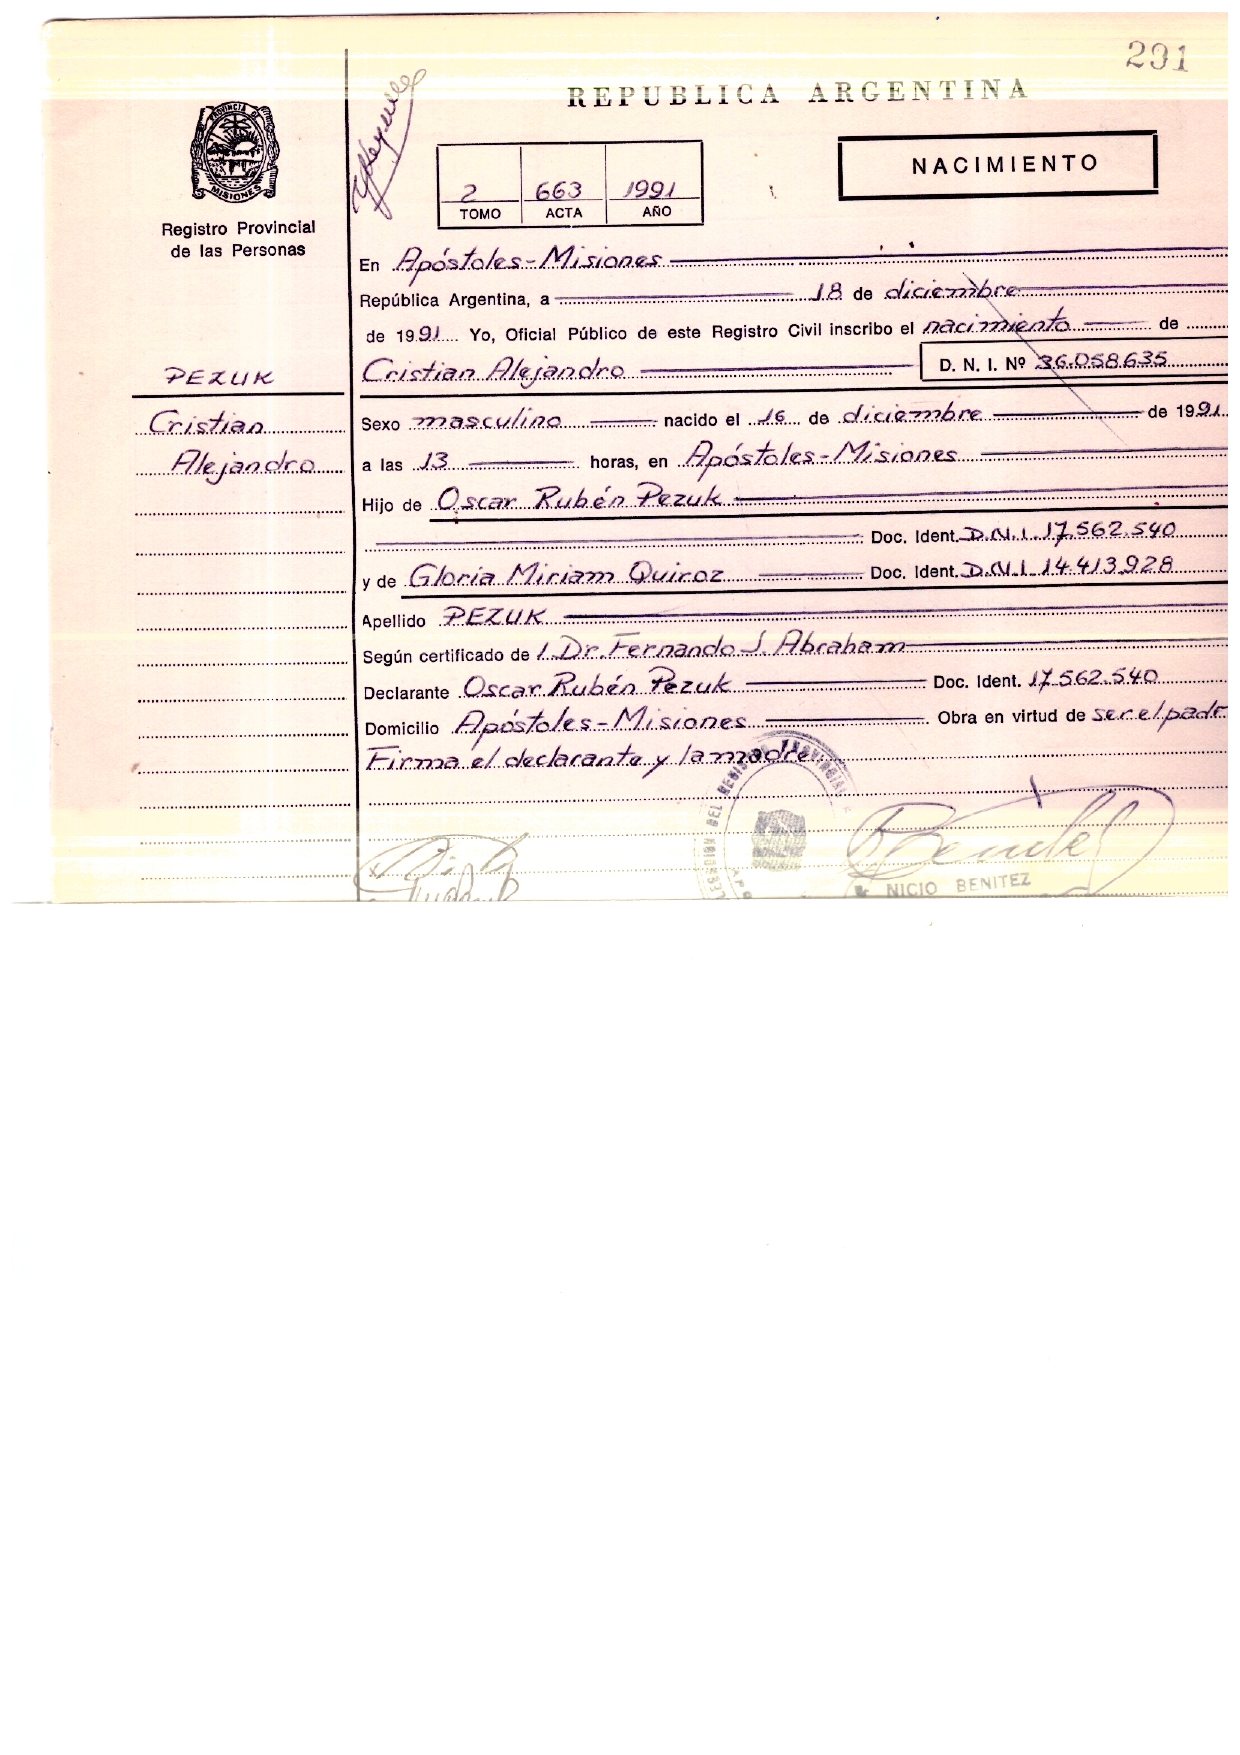 291
REPUBLICA ARGENTINA
PROVINCIA DE
MISIONES
Registro Provincial
de las Personas
2 663 1991
TOMO ACTA AÑO
NACIMIENTO
En Apóstoles-Misiones
República Argentina, a 18 de diciembre
de 1991 Yo, Oficial Público de este Registro Civil inscribo el nacimiento de
PEZUK
Cristian Alejandro D. N. I. Nº 36.058.635
Cristian
Alejandro
Sexo masculino nacido el 16 de diciembre de 1991
a las 13 horas, en Apóstoles-Misiones
Hijo de Oscar Rubén Pezuk
Doc. Ident. D.N.I. 17.562.540
y de Gloria Miriam Quiroz Doc. Ident. D.N.I. 14.413.928
Apellido PEZUK
Según certificado de l. Dr. Fernando J. Abraham
Declarante Oscar Rubén Pezuk Doc. Ident. 17.562.540
Domicilio Apóstoles-Misiones Obra en virtud de ser el padr
Firma el declarante y la madre
DEL REGISTRO PROVINCIAL
NICIO BENITEZ